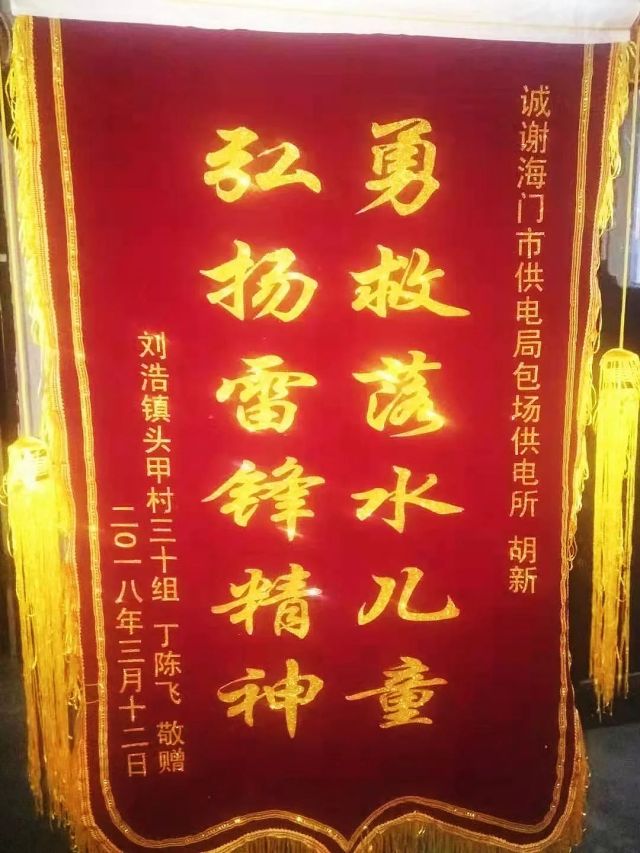 诚谢海门市供电局包场供电所 胡新
勇救落水儿童
弘扬雷锋精神
刘浩镇头甲村三十组 丁陈飞 敬赠
二〇一八年三月十二日